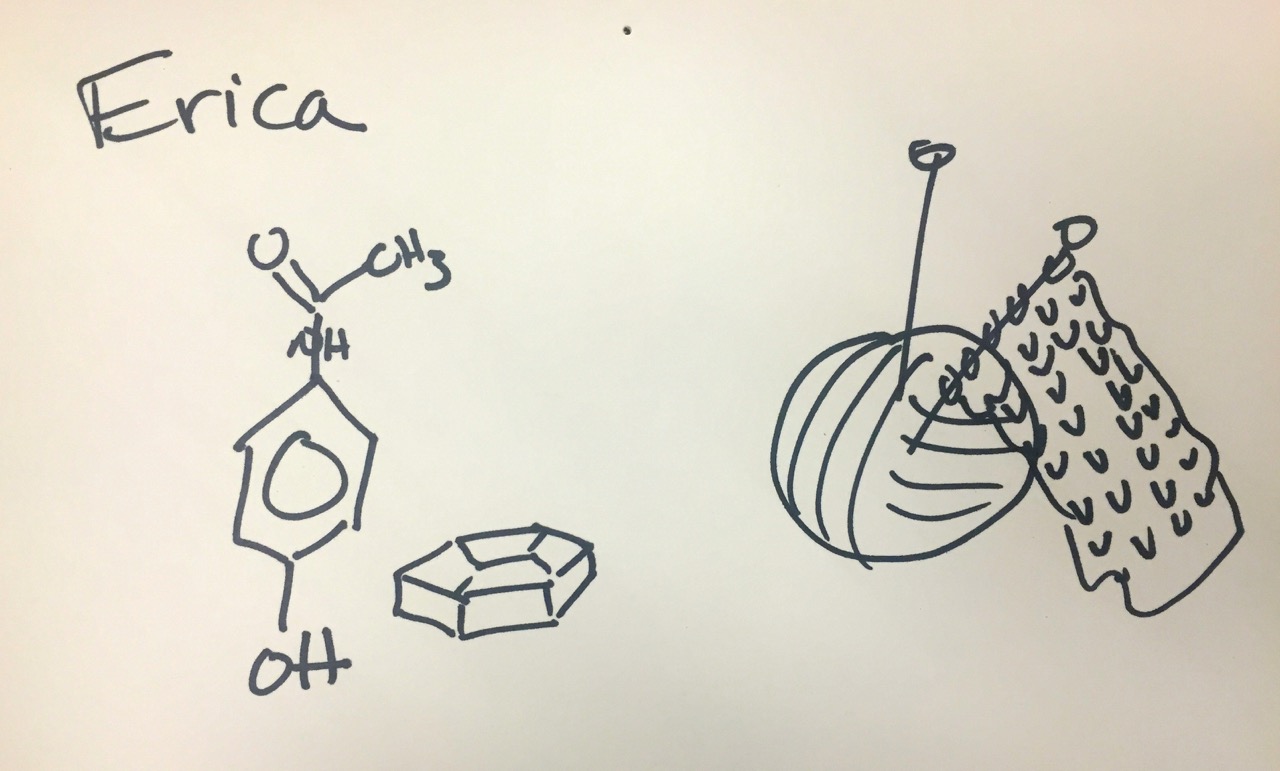 Erica
O
CH3
NH
OH